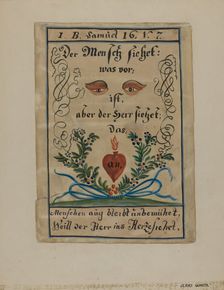 1 B. Samuel 16. V. 7.
Der Mensch siehet:
was vor,
ist,
aber der Herr siehet;
Das
an.
Menschen aug bleibt unbemühet,
Weill der Herr ins Herze siehet.